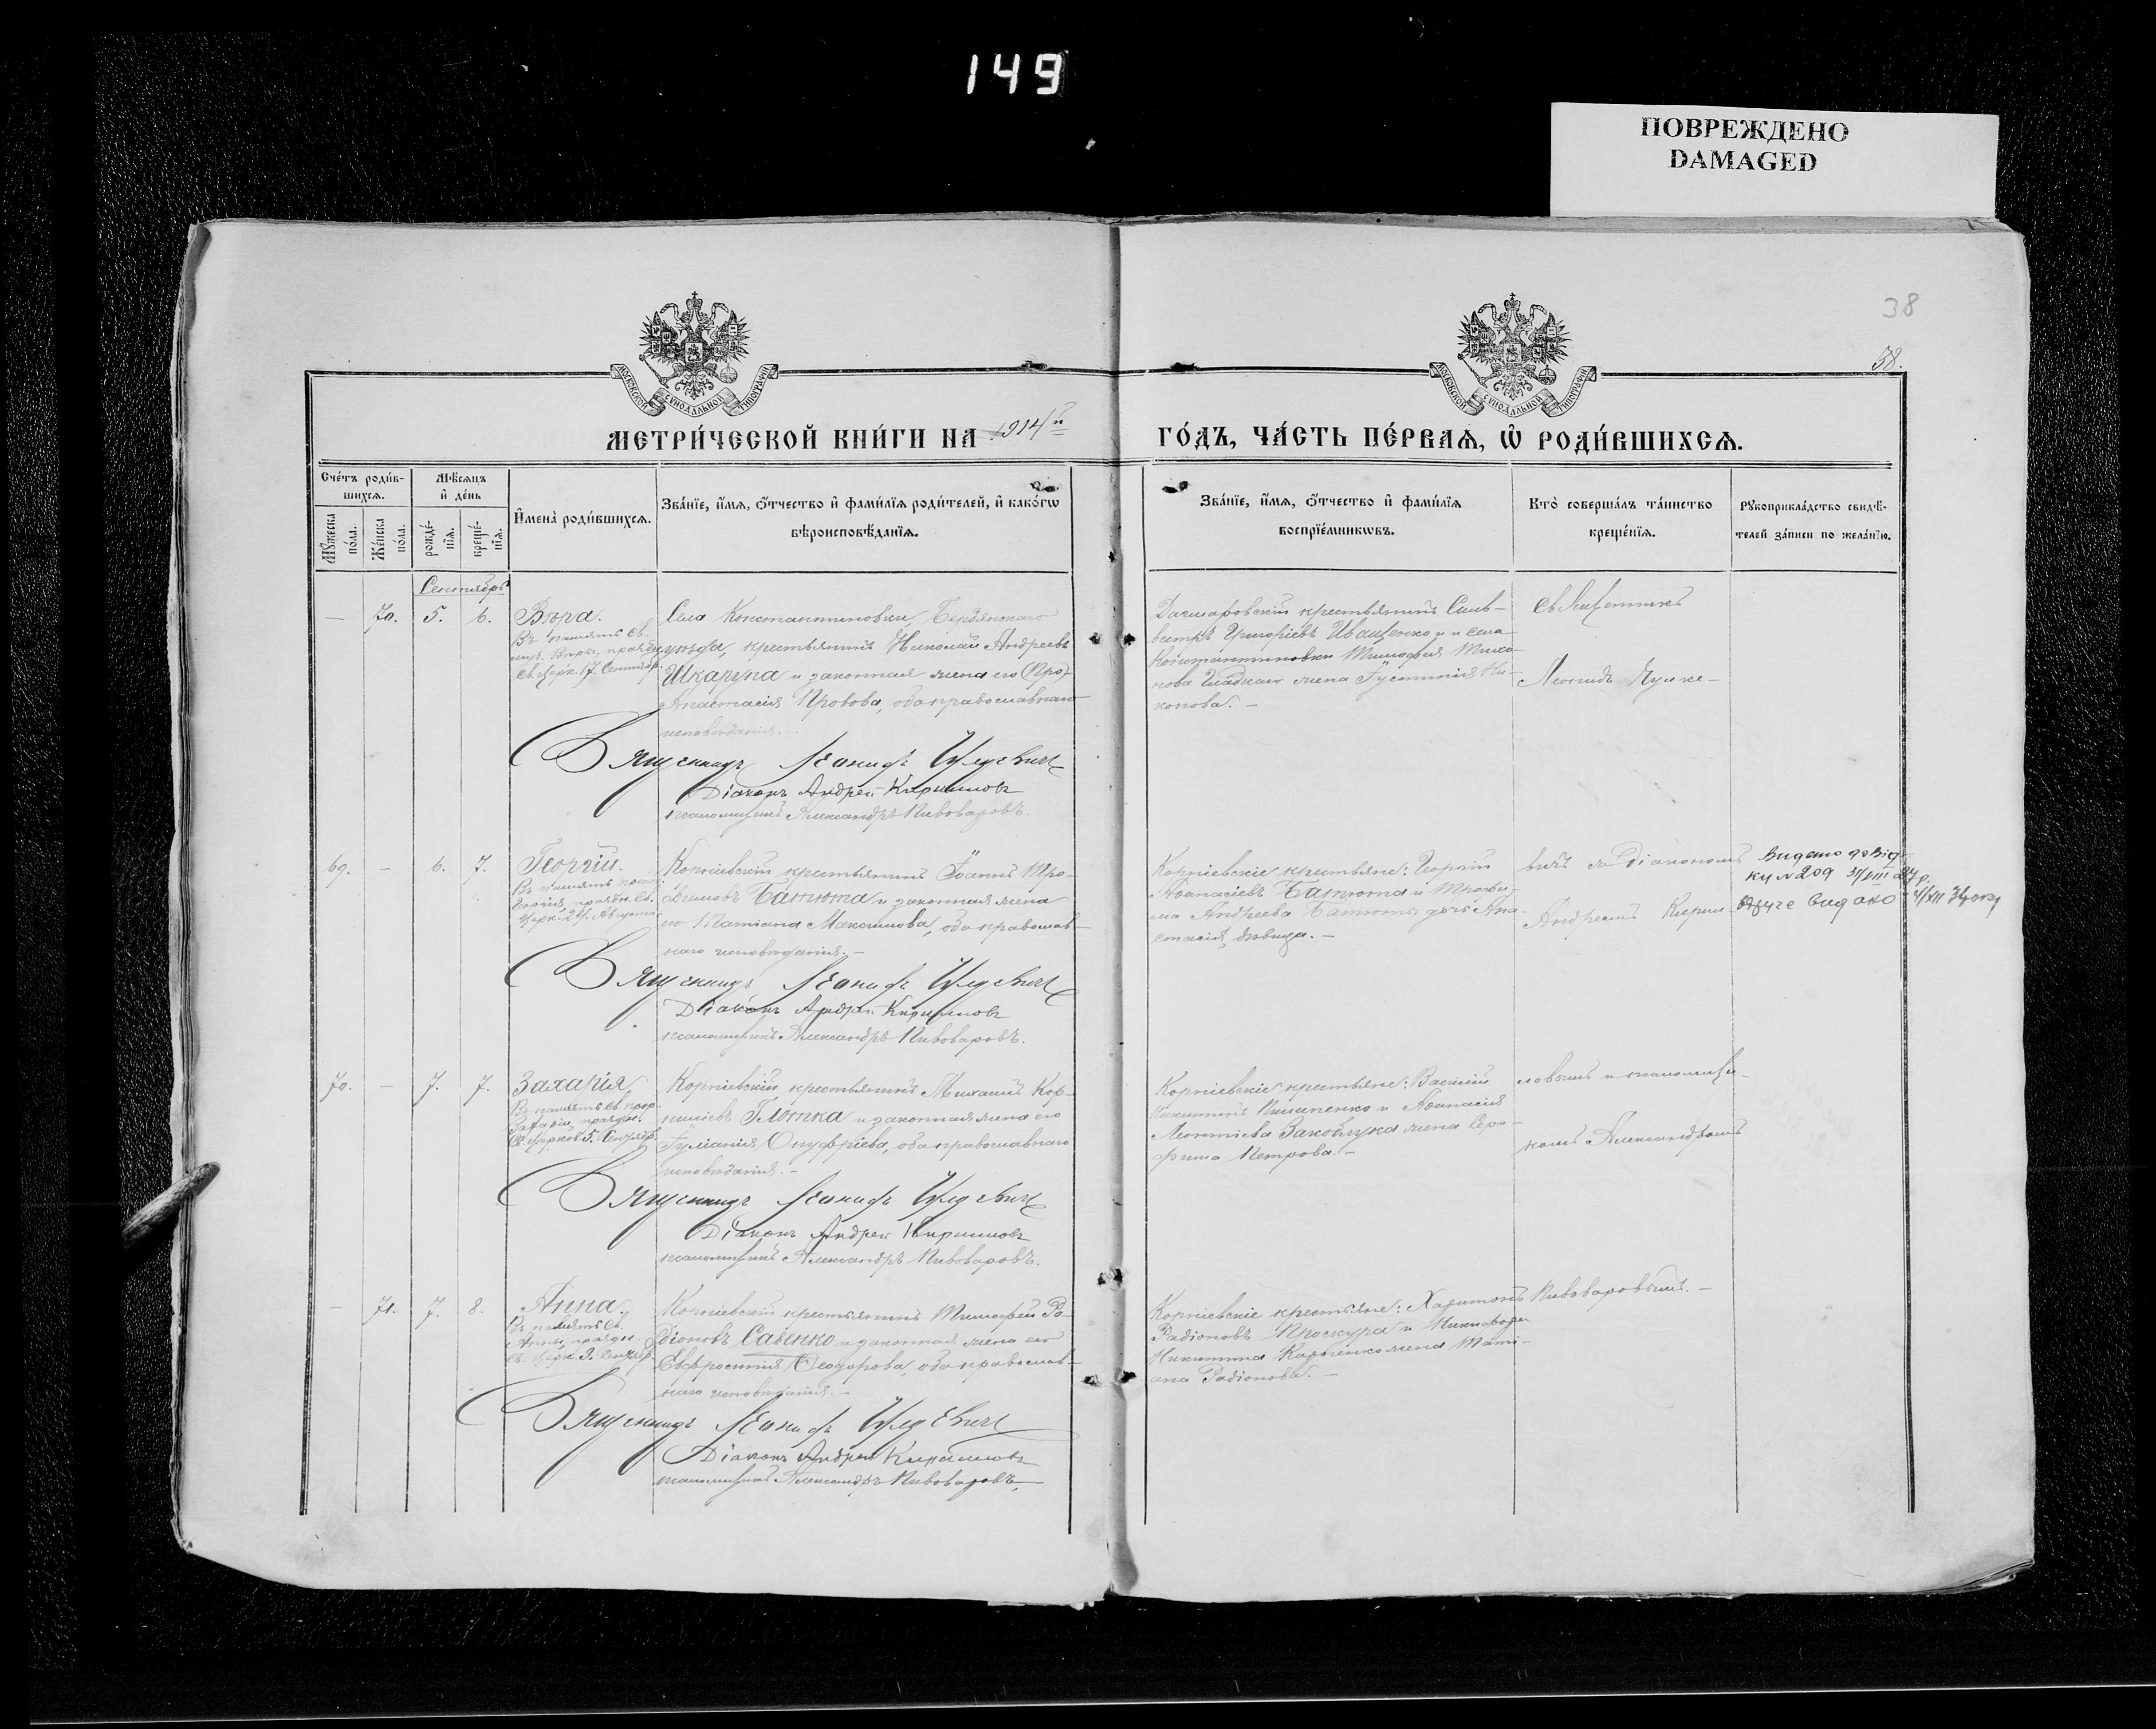 149
ПОВРЕЖДЕНО
DAMAGED
38
38.
МОСКОВСКОЙ СѴНОДАЛЬНОЙ ТИПОГРАФІИ
МОСКОВСКОЙ СѴНОДАЛЬНОЙ ТИПОГРАФІИ
МЕТРИ́ЧЕСКОЙ КНИ́ГИ НА 1914й
ГО́ДЪ, ЧА́СТЬ ПЕ́РВАѦ, Ѡ҆ РОДИ́ВШИХСѦ.
Сче́тъ роди́в-
шихсѧ.
Мꙋ́жеска по́ла.
Же́нска по́ла.
Мѣ́сѧцъ
и҆ де́нь
рожде́-
нїѧ.
креще́-
нїѧ.
И҆мена̀ роди́вшихсѧ.
Зва́нїе, и҆́мѧ, ѻ҆́тчество и҆ фами́лїѧ роди́телей, и҆ како́гѡ
вѣроисповѣ́данїѧ.
Зва́нїе, и҆́мѧ, ѻ҆́тчество и҆ фами́лїѧ
воспрїе́мникѡвъ.
Кто̀ соверша́лъ та́инство
креще́нїѧ.
Рꙋкоприкла́дство свидѣ́-
телей за́писи по жела́нїю.
Сентябрь
— 70. 5. 6.
Вѣра.
Въ память св.
муч. Вѣры, праздн.
св. церк. 17 Сентябр.
Села Константиновки, Бердянскаго
уѣзда, крестьянинъ Николай Андреевъ
Шкарупа и законная жена его (Про)
Анастасія Провова, оба православнаго
исповѣданія.—
Священникъ Леонидъ
Діаконъ Андрей Кириловъ
псаломщикъ Александръ Пивоваровъ.
крестьянинъ Силь-
вестръ Григоріевъ Иващенко и села
Константиновки Тимофея Тихо-
нова Гладкаго жена Іустинія Ни-
конова.—
Священникъ
Леонидъ
69. — 6. 7.
Георгій.
Корніевскій крестьянинъ Іоаннъ Тро-
фимовъ Батюта и законная жена
его Татіана Максимова, оба православ-
наго исповѣданія.—
Священникъ Леонидъ
Діаконъ Андрей Кириловъ
псаломщикъ Александръ Пивоваровъ.
Корніевскіе крестьяне: Георгій
Аѳанасіевъ Батюта и Трофи-
ма Андреева Батюты дочь Ана-
стасія, дѣвица.—
вичъ съ діакономъ
Андреемъ Кирил-
Видано довід-
ку №209 31/VIII 27 р.
вдруге видано
70. — 7. 7.
Захарія
Въ память св. прор.
Захаріи, праздн.
св. церков. 5. Сентябр.
Корніевскій крестьянинъ Михаилъ Кор-
ниліевъ Глотка и законная жена его
Іуліанія Онуфріева, оба православнаго
исповѣданія.—
Священникъ Леонидъ
Діаконъ Андрей Кириловъ
псаломщикъ Александръ Пивоваровъ.
Корніевскіе крестьяне: Василій
Никитинъ Пилипенко и Аѳанасія
Леонтіева Закаблука жена Сера-
фима Петрова.—
ловымъ и псаломщи-
комъ Александромъ
— 71. 7. 8.
Анна.
Въ память св.
Анны, праздн.
св. церк. 9. Сентябр.
Корніевскій крестьянинъ Тимофей Ра-
діоновъ Савенко и законная жена его
Евфросинія Ѳеодорова, оба православ-
наго исповѣданія.—
Священникъ Леонидъ
Діаконъ Андрей Кириловъ
псаломщикъ Александръ Пивоваровъ.
Корніевскіе крестьяне: Харитонъ
Радіоновъ Проскура и Никифора
Никитина Карпенко жена Тати-
ана Радіонова.—
Пивоваровымъ.—